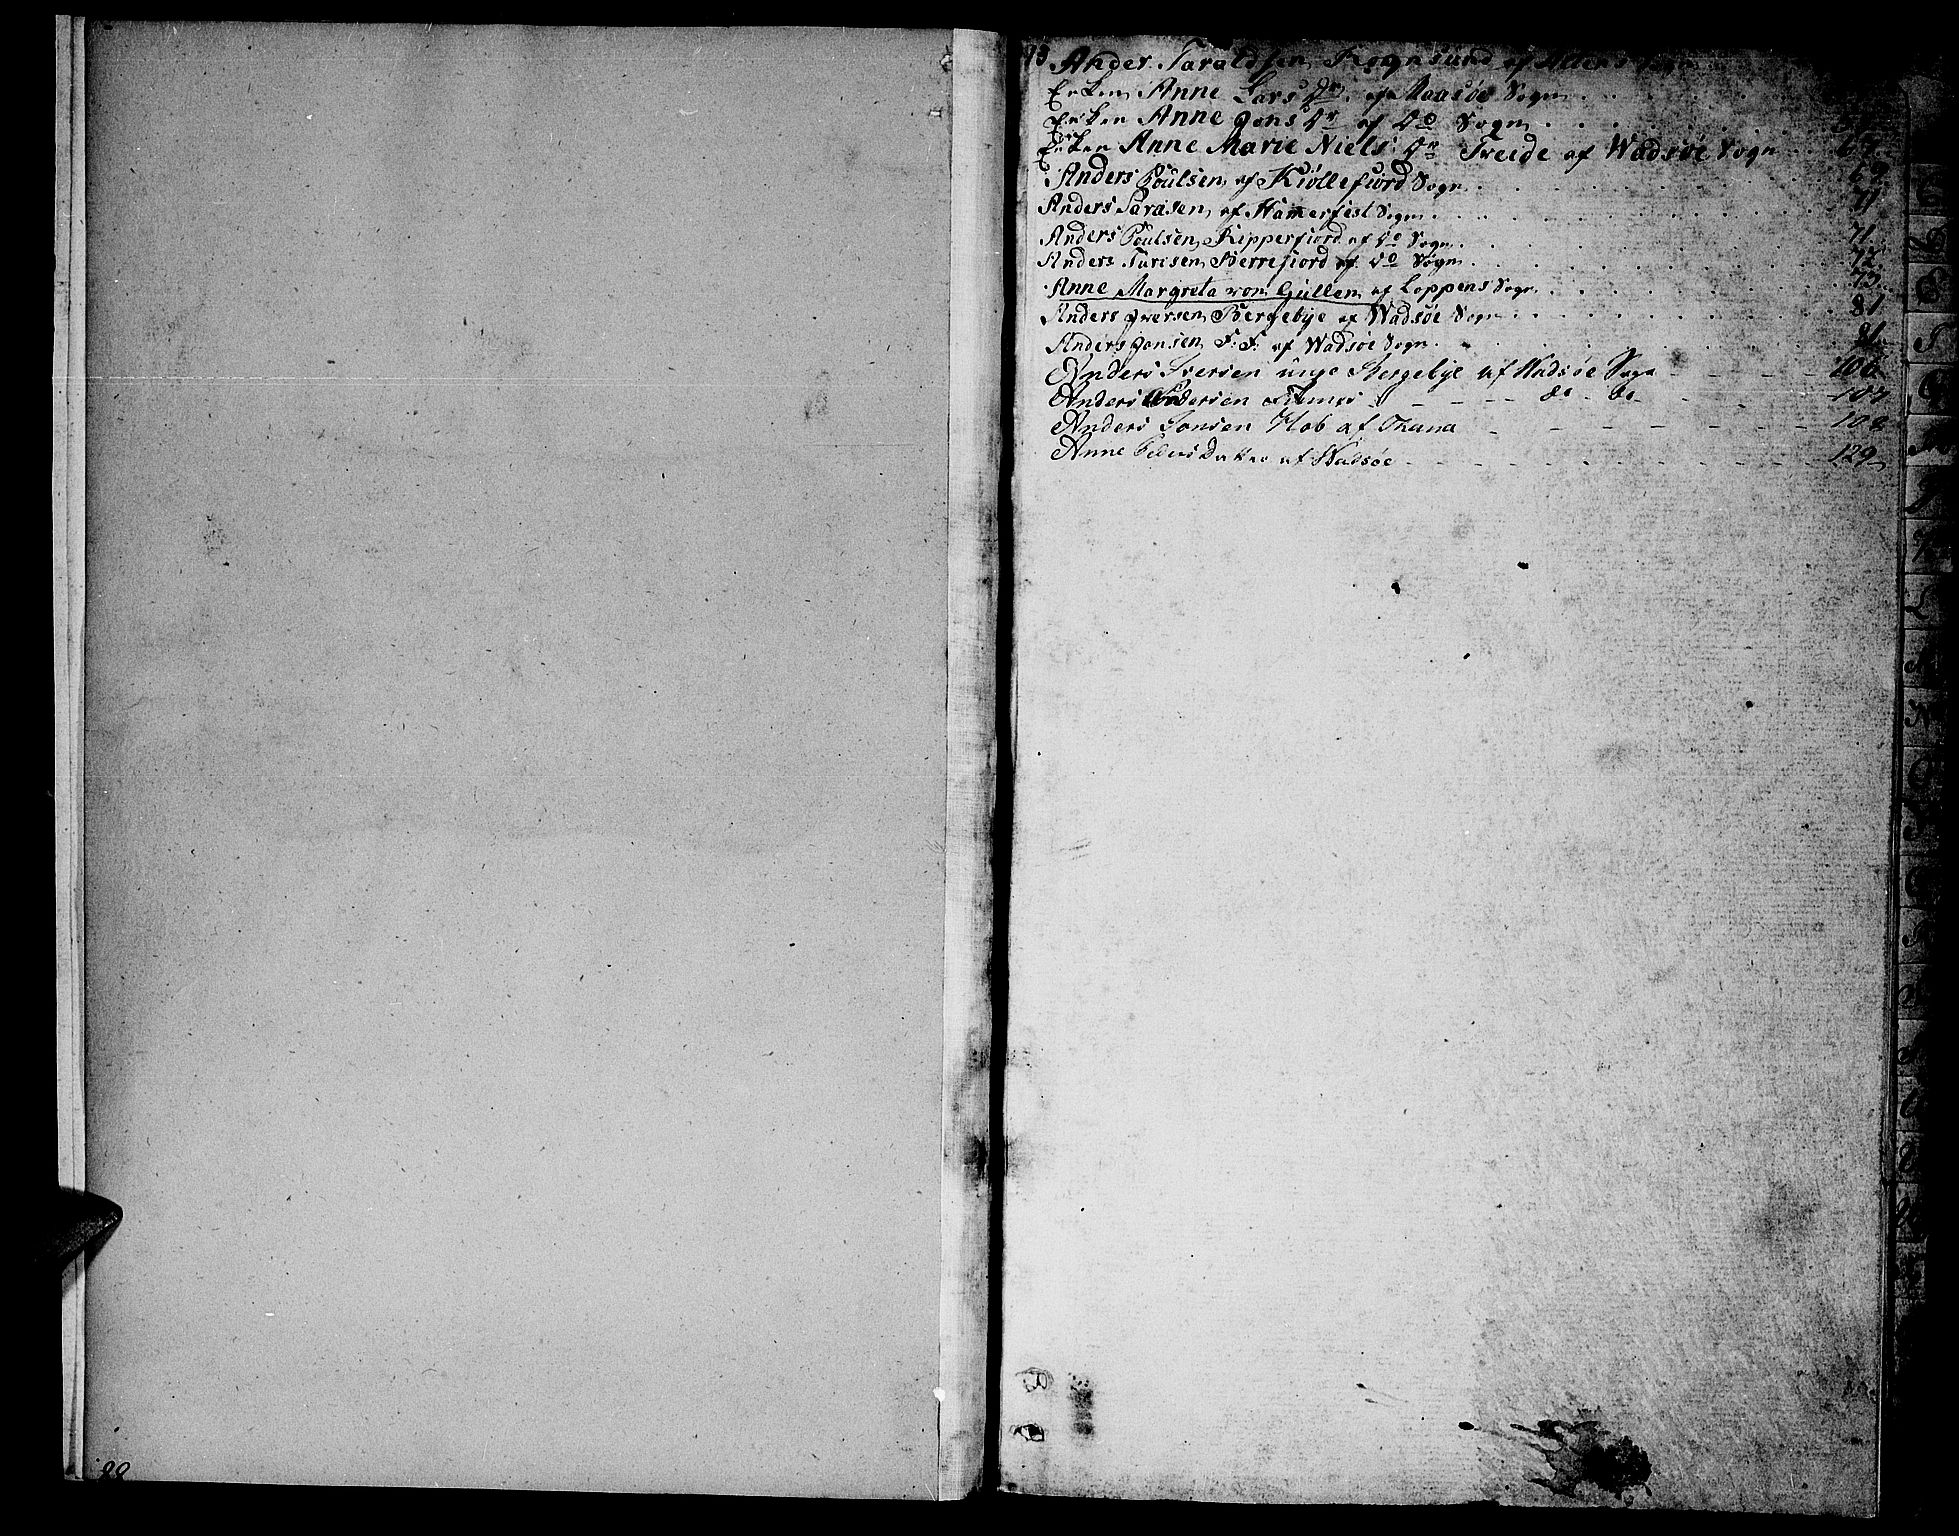 Anders Taraldsen Rognsund af Altens Sogn
Enken Anne Lars Dr. af Maasöe Sogn
Enken Anne Jons Dr af do Sogn . . . 57
Enken Anne Marie Niels Dr Treide af Wadsöe Sogn . . 67
Anders Poulsen af Kiöllefiord Sogn . . . 69
Anders Sarasen af Hamerfest Sogn . . . 71
Anders Poulsen Ripperfiord af do Sogn . . . 71
Anders Turisen Berrefiord af do Sogn . . . 72
Anne Margreta von Güllen af Loppens Sogn . . . 73
Anders Iversen Bergebye af Wadsöe Sogn . . . 81
Anders Jonsen F: F: af Wadsöe Sogn . . . 81
Anders Iversen unge Bergebye af Wadsöe Sogn - - 106
Anders Andersen - - - do - do - - 107
Anders Jonsen Hob af Thana - - - 108
Anne Peders Datter af Wadsöe - - - 129
88